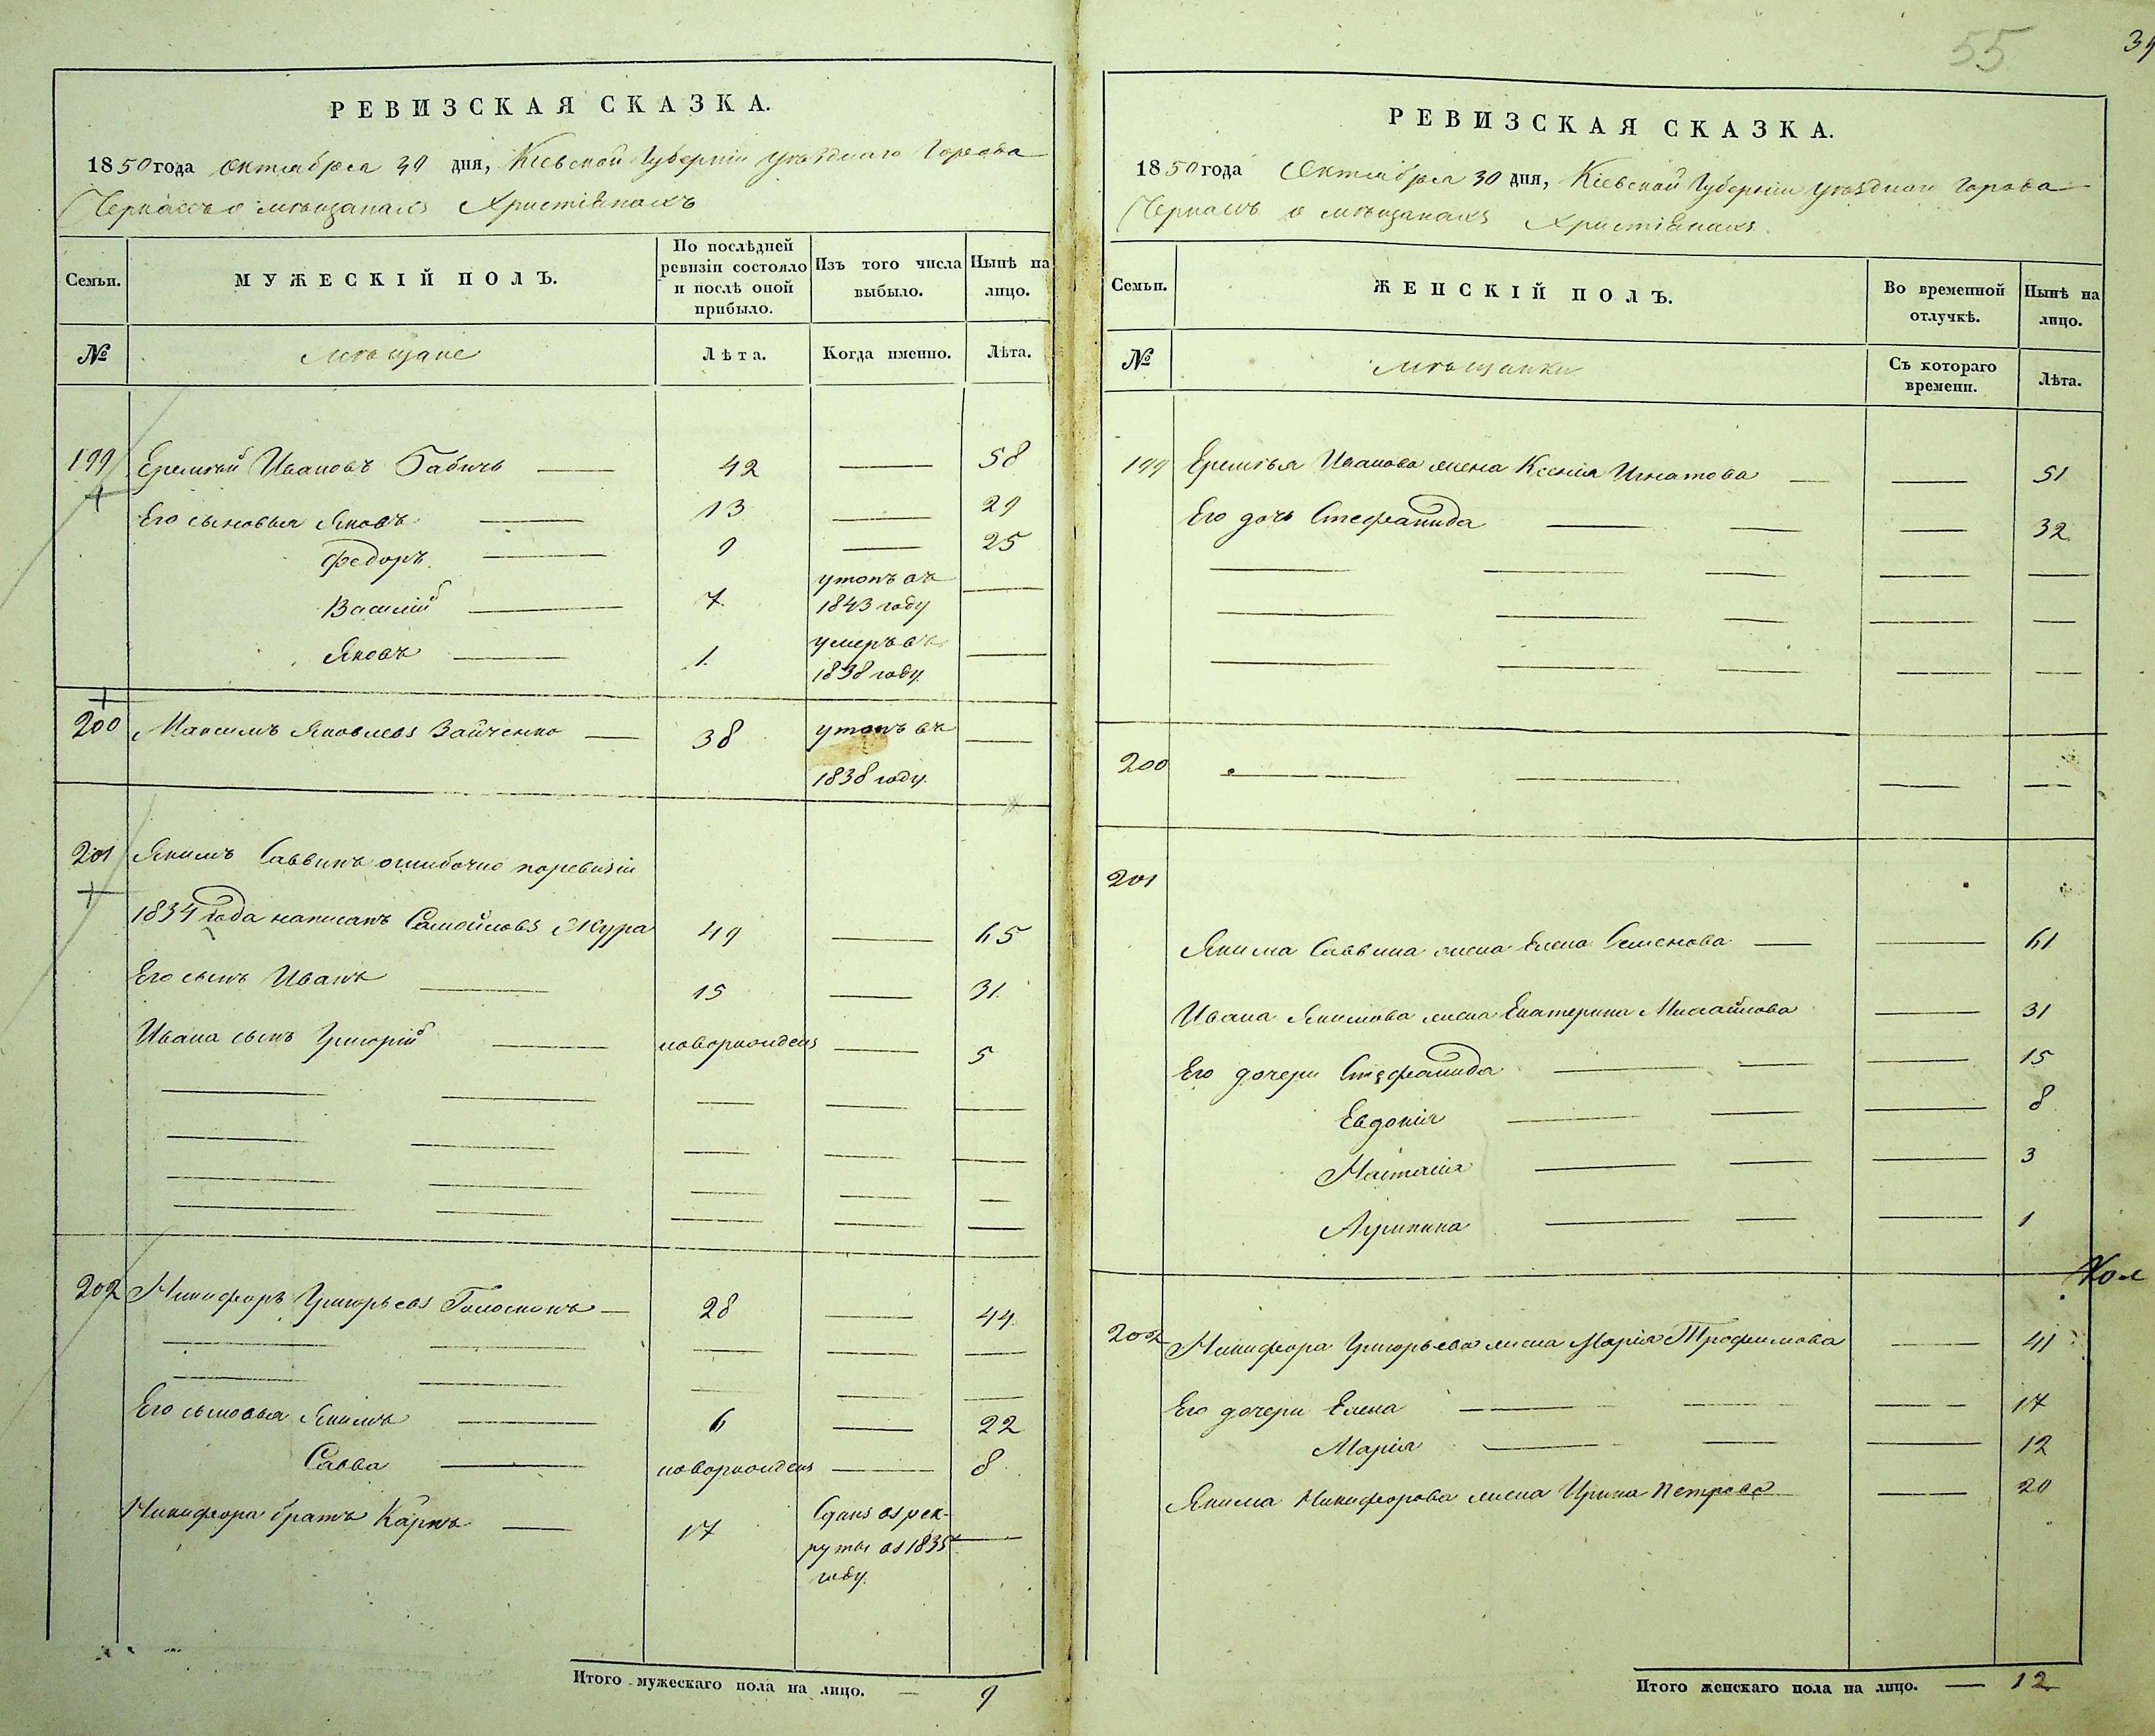 РЕВИЗСКАЯ СКАЗКА.
1850 года Октября 30 дня, Кіевской Губерніи уѣзднаго Города
Черкасъ о мѣщанахъ Христіянахъ
Семьи.
МУЖЕСКІЙ ПОЛЪ.
По послѣдней ревизіи состояло и послѣ оной прибыло.
Изъ того числа выбыло.
Нынѣ на лицо.
№
мѣщане
Лѣта.
Когда именно.
Лѣта.
199 Еремѣй Ивановъ Бабичъ — 42 — 58
Его сыновья Яковъ — 13 — 29
Федоръ — 9 — 25
Василій — 7 утопъ въ 1843 году —
Яковъ — 1 умеръ въ 1838 году —
200 Максимъ Яковлевъ Зайченко — 38 утопъ въ 1838 году —
201 Якимъ Саввинъ ошибочно поревизіи
1834 года написанъ Самойловъ Жура 49 — 65
Его сынъ Иванъ — 15 — 31
Ивана сынъ Григорій — новорожденъ — 5
202 Никифоръ Григорьевъ Голоскокъ — 28 — 44
Его сыновья Якимъ — 6 — 22
Савва — новорожденъ — 8
Никифора братъ Карпъ — 17 Сданъ въ рек-
руты въ 1835
году —
Итого мужескаго пола на лицо. — 9
55
РЕВИЗСКАЯ СКАЗКА.
1850 года Октября 30 дня, Кіевской Губерніи уѣзднаго Города
Черкасъ о мѣщанахъ Христіянахъ
Семьи.
ЖЕНСКІЙ ПОЛЪ.
Во временной отлучкѣ.
Нынѣ на лицо.
№
мѣщанки
Съ котораго времени.
Лѣта.
199 Еремѣя Иванова жена Ксенія Игнатова — — 51
Его дочь Стефанида — — 32
200 — — —
201
Якима Саввина жена Елена Семенова — — 61
Ивана Якимова жена Екатерина Михайлова — 31
Его дочери Стефанида — — 15
Евдокія — — 8
Настасія — — 3
Акулина — — 1
202 Никифора Григорьева жена Марія Трофимова — 41
Его дочери Елена — — 17
Марія — — 12
Якима Никифорова жена Ирина Петрова — 20
Итого женскаго пола на лицо. — 12